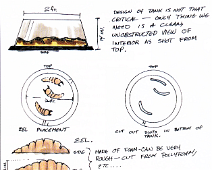 2 ft.
DESIGN OF TANK IS NOT THAT
CRITICAL - ONLY THING WE
NEED IS A CLEAR,
UNOBSTRUCTED VIEW OF
INTERIOR AS SHOT FROM
TOP.
SIDE
TOP
TOP
EEL PLACEMENT
CUT OUT SLOTS IN BOTTOM OF
TANK.
EEL
SIDE
MADE OF FOAM-CAN BE VERY
ROUGH - CUT FROM POLYFOAM/
ETC....